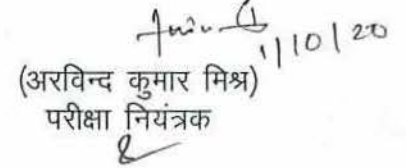 1/10/20
(अरविन्द कुमार मिश्र)
परीक्षा नियंत्रक